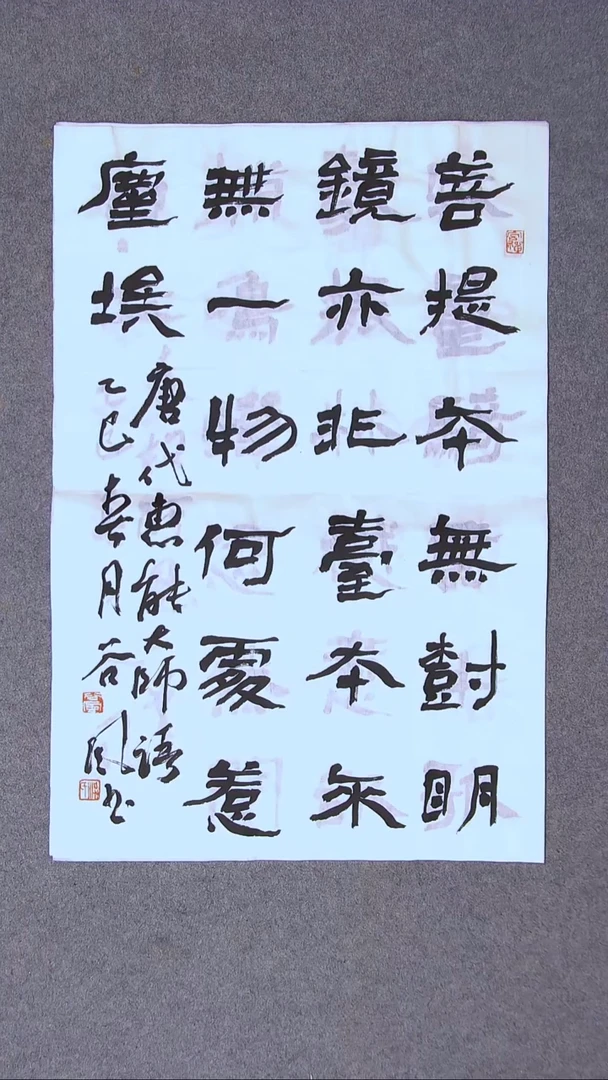 菩提本無樹明
鏡亦非臺本来
無一物何處惹
塵埃
唐代惠能大師語
乙巳春月谷风书